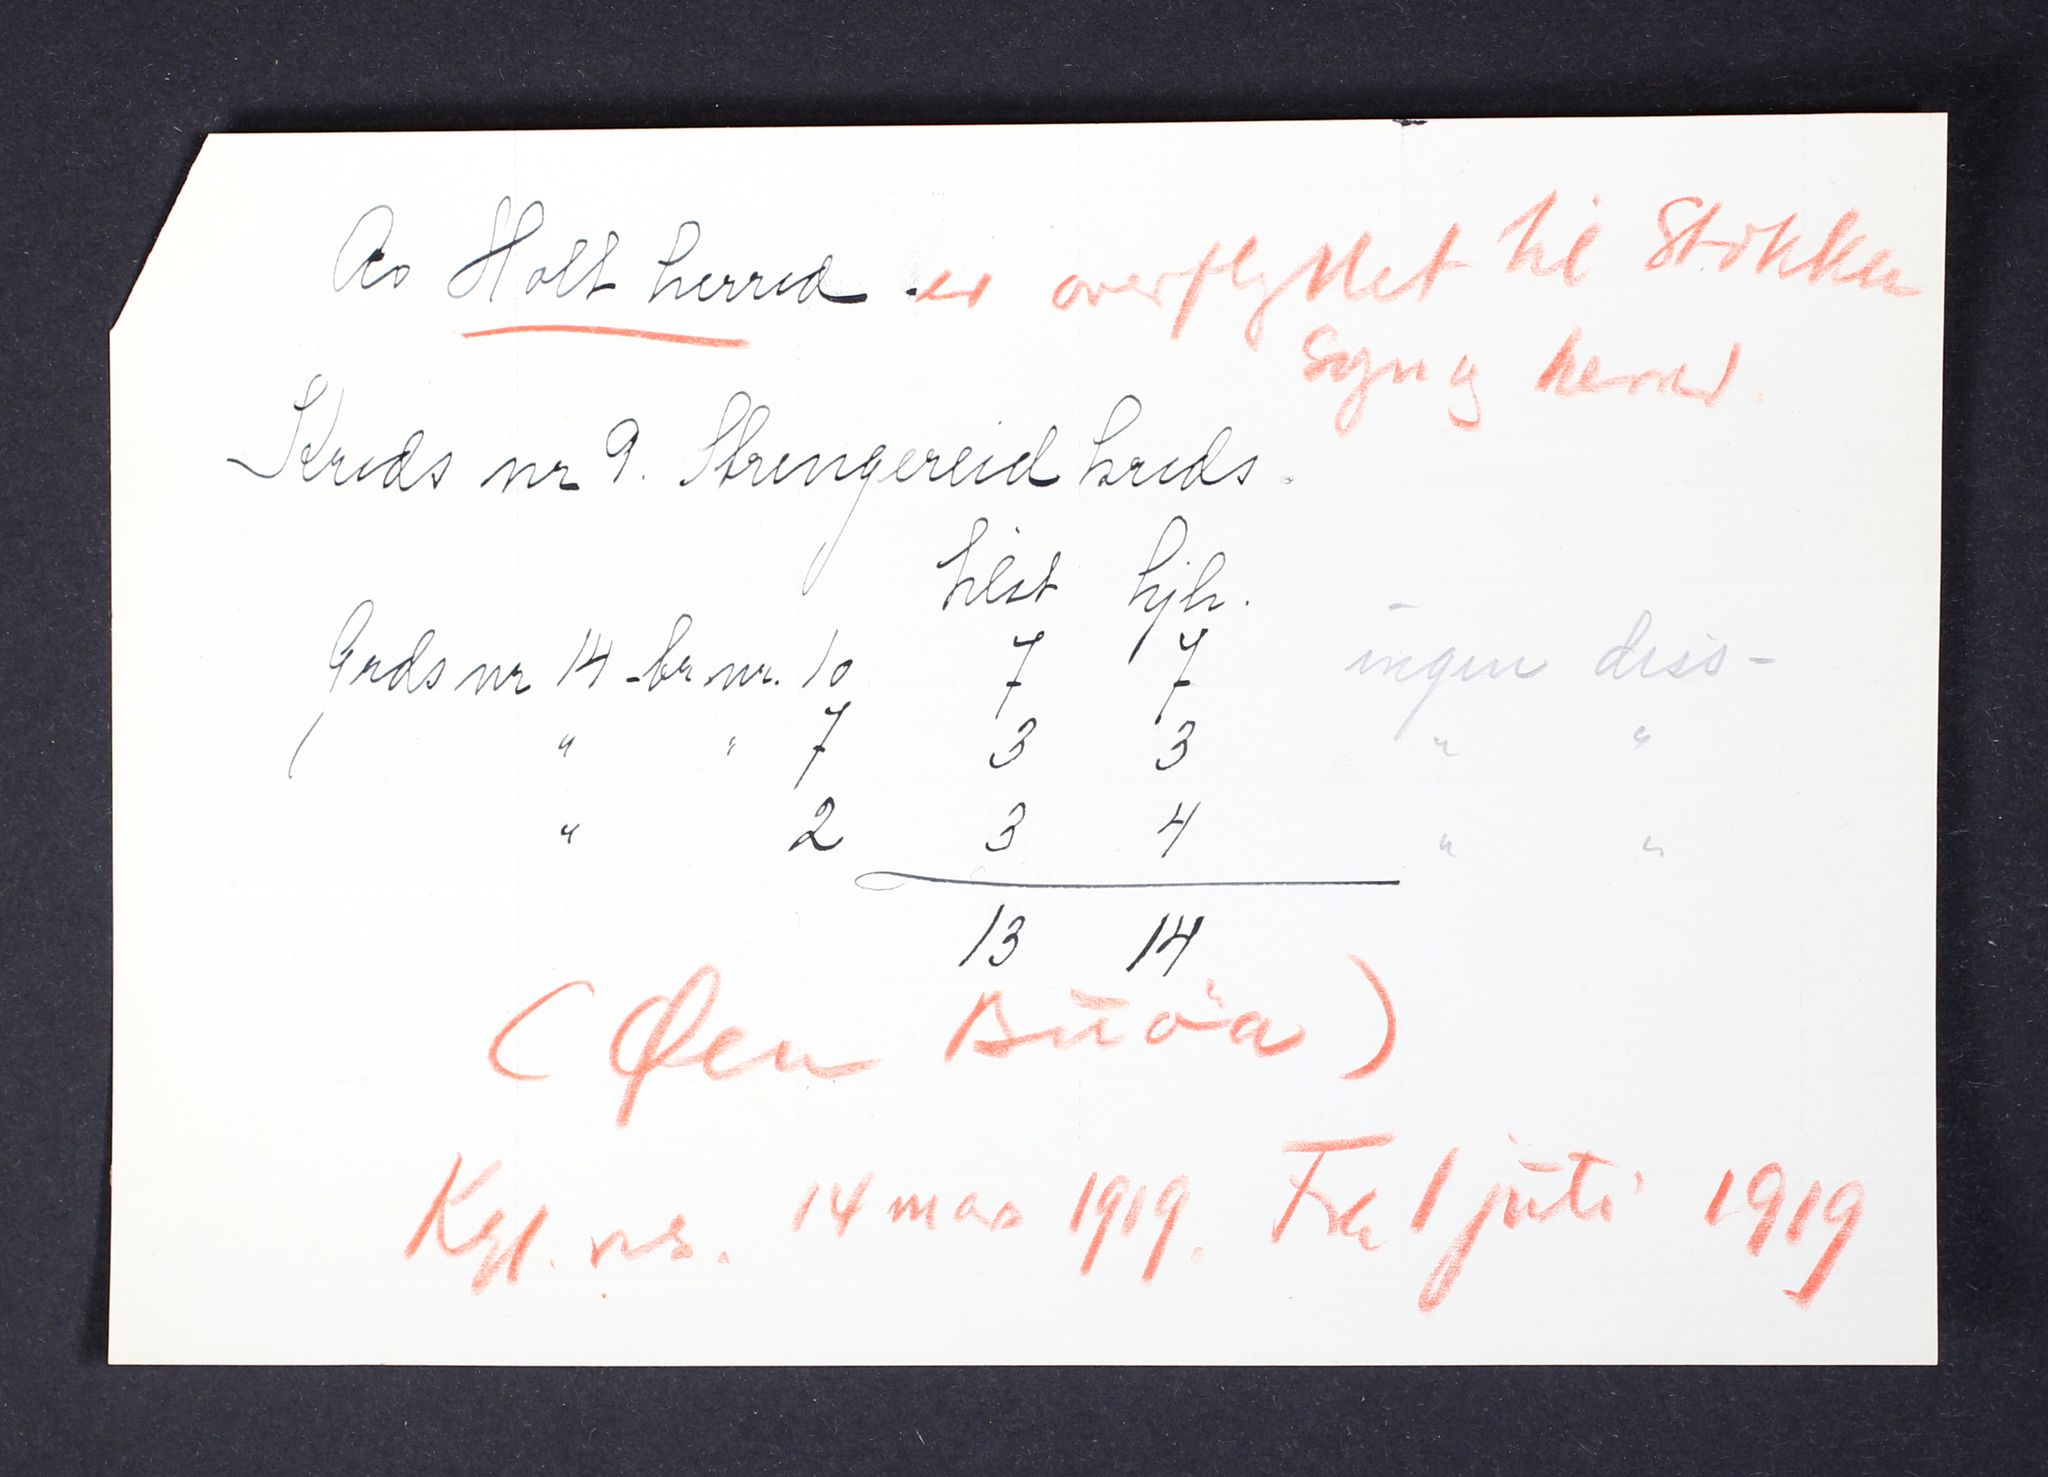 Av Holt herred er overflyttet til Stokken
sogn og herred.
Kreds nr 9. Strengereid kreds.
tilst hjh.
Grds nr 14 br. nr. 10 7 7 ingen diss-
" " 7 3 3 " "
" 2 3 4 " "
13 14
(Øen Buöa)
Kgl. res. 14 mars 1919. Fra 1 juli 1919